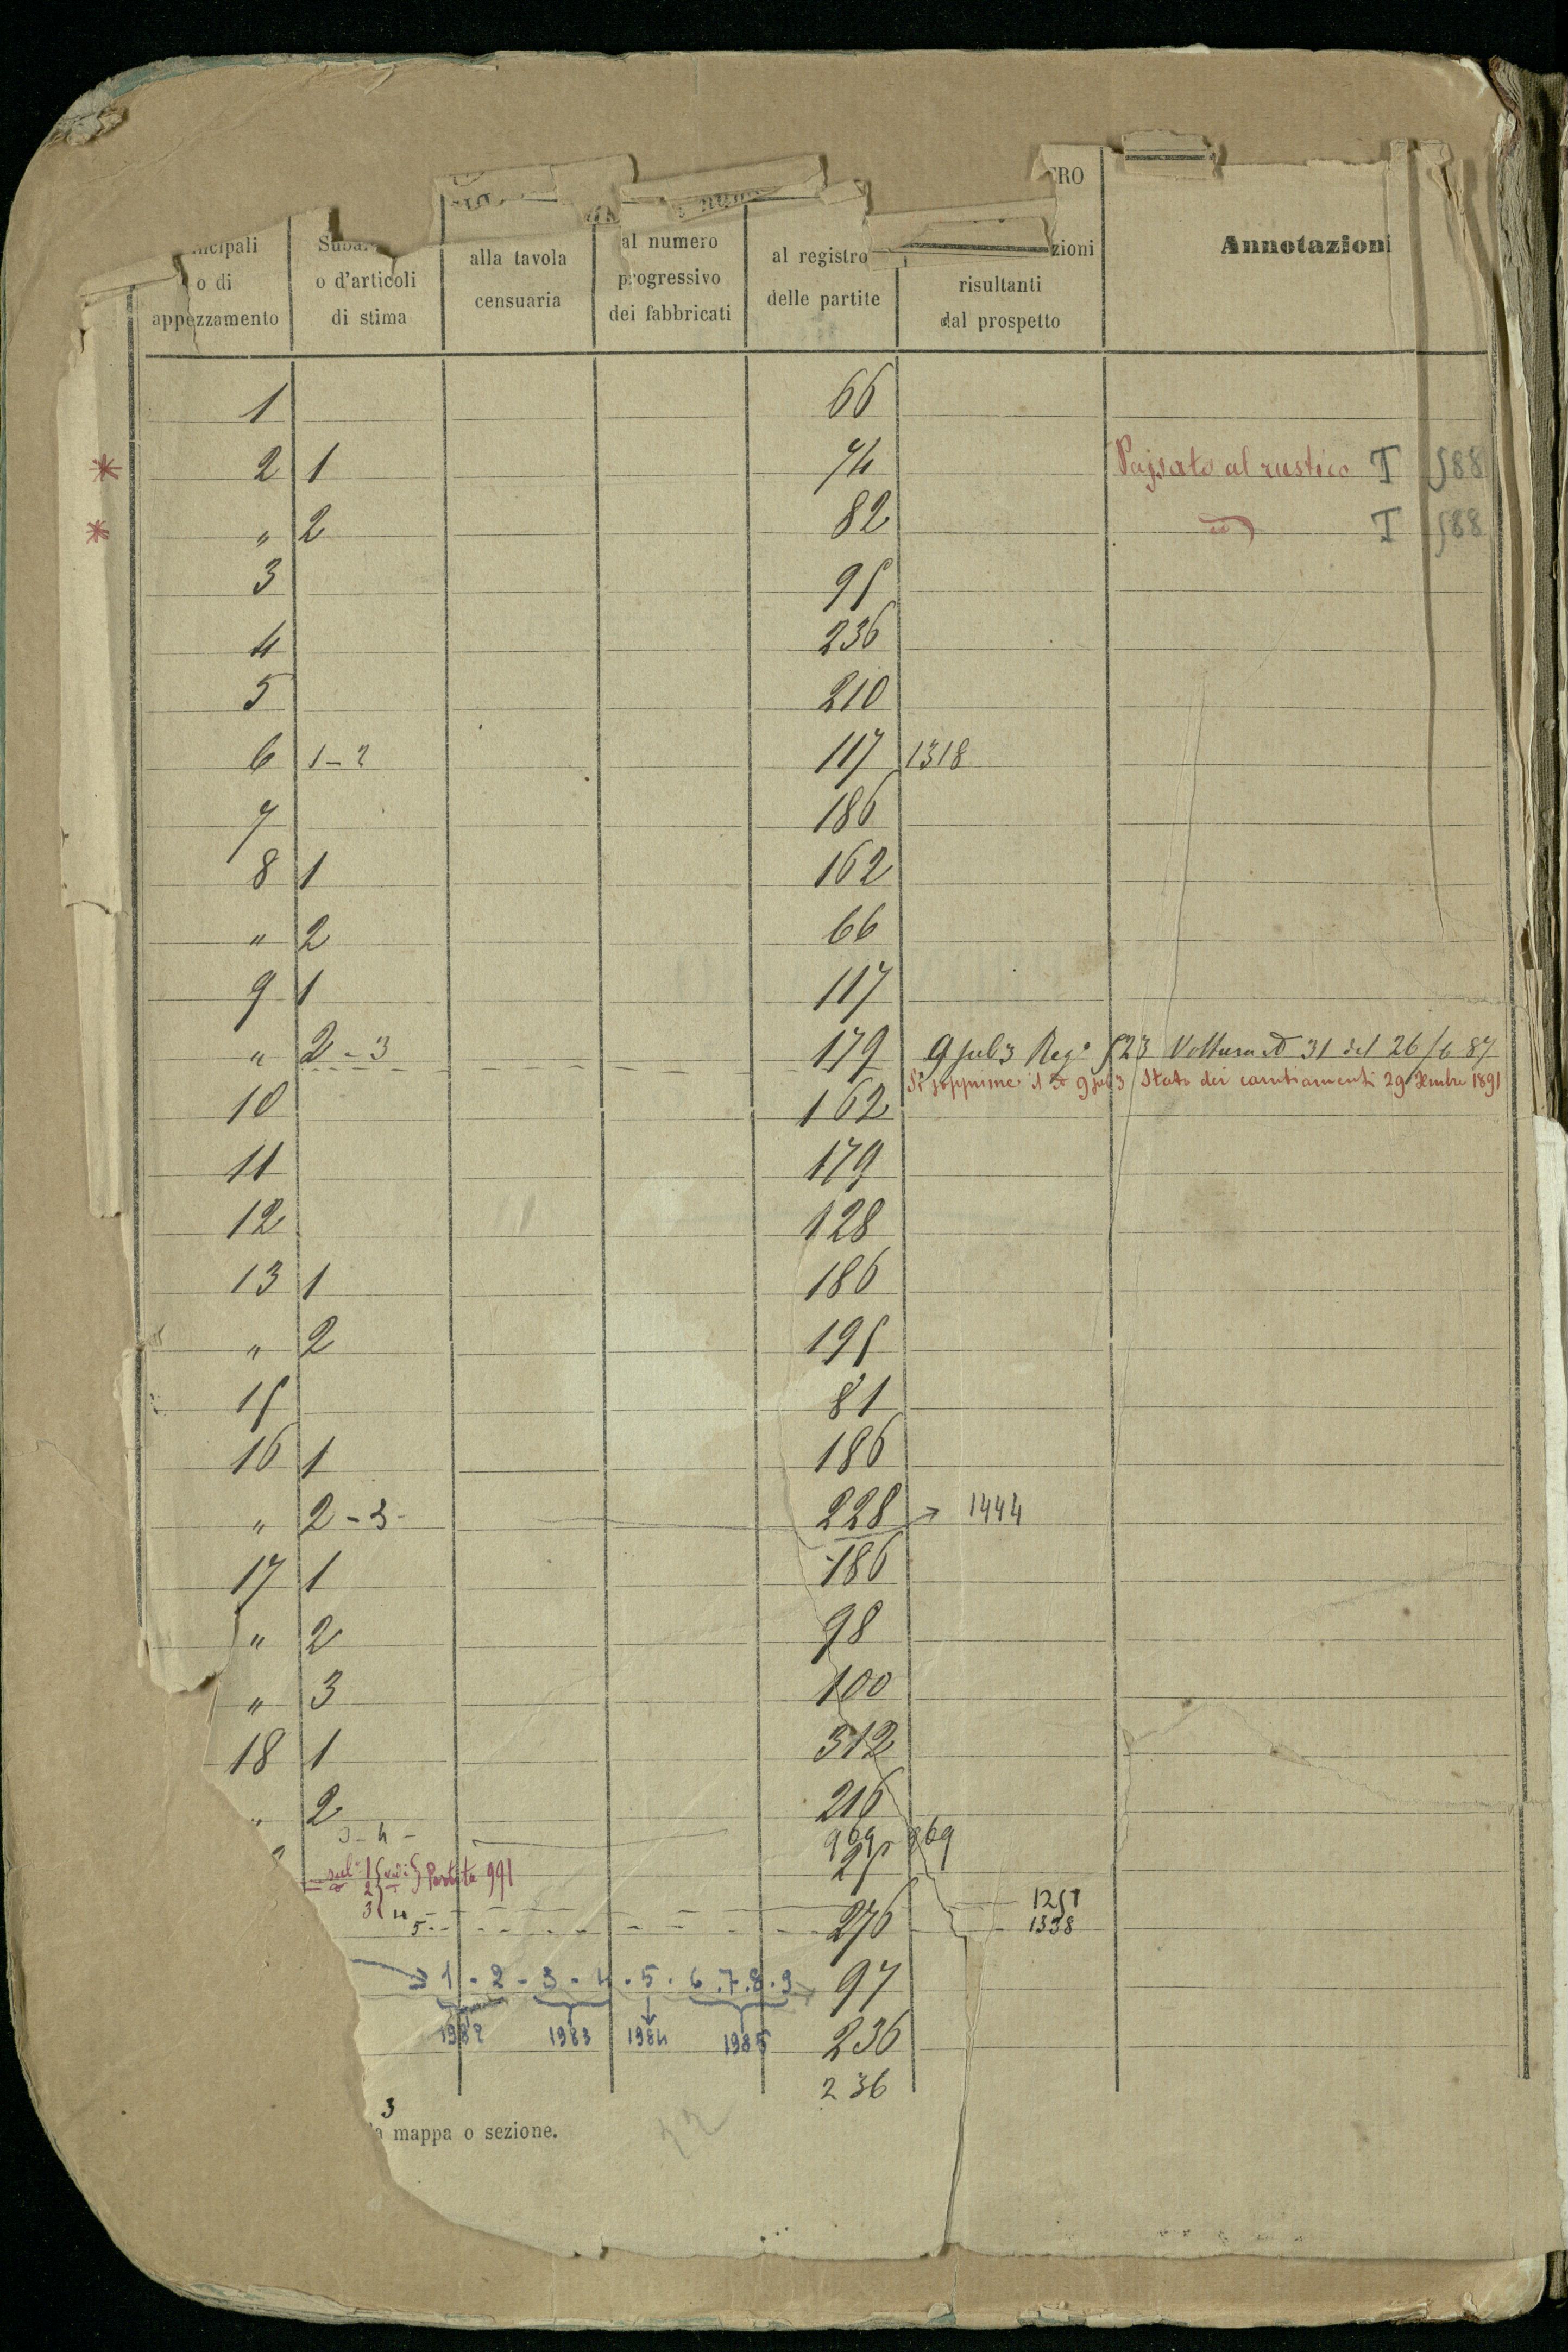 ERO
cipali Suba zioni Annotazioni
o di o d'articoli alla tavola al numero al registro risultanti
appezzamento di stima censuaria progressivo delle partite dal prospetto
dei fabbricati
1 66
* 2 1 74 Passato al rustico T 588
* " 2 82 id T 588
3 95
4 236
5 210
6 1-2 117 1318
7 186
8 1 162
" 2 66
9 1 117
" 2-3 179 9 sub 3 Reg° 523 Voltura N 31 del 26/6 87
Si sopprime il N 9 sub 3 Stato dei cambiamenti 29 Xembre 1891
10 162
11 179
12 128
13 1 186
" 2 195
15 81
16 1 186
" 2-3- 228 → 1444
17 1 186
" 2 98
" 3 100
18 1 312
" 2 216
3-4- 969 969
25
sub 1 Partita 991
2
3 4 1251
5 276 1338
1.2-3.4.5.6.7.8.9 97
1982 1983 1984 1985 236
236
3
a mappa o sezione.